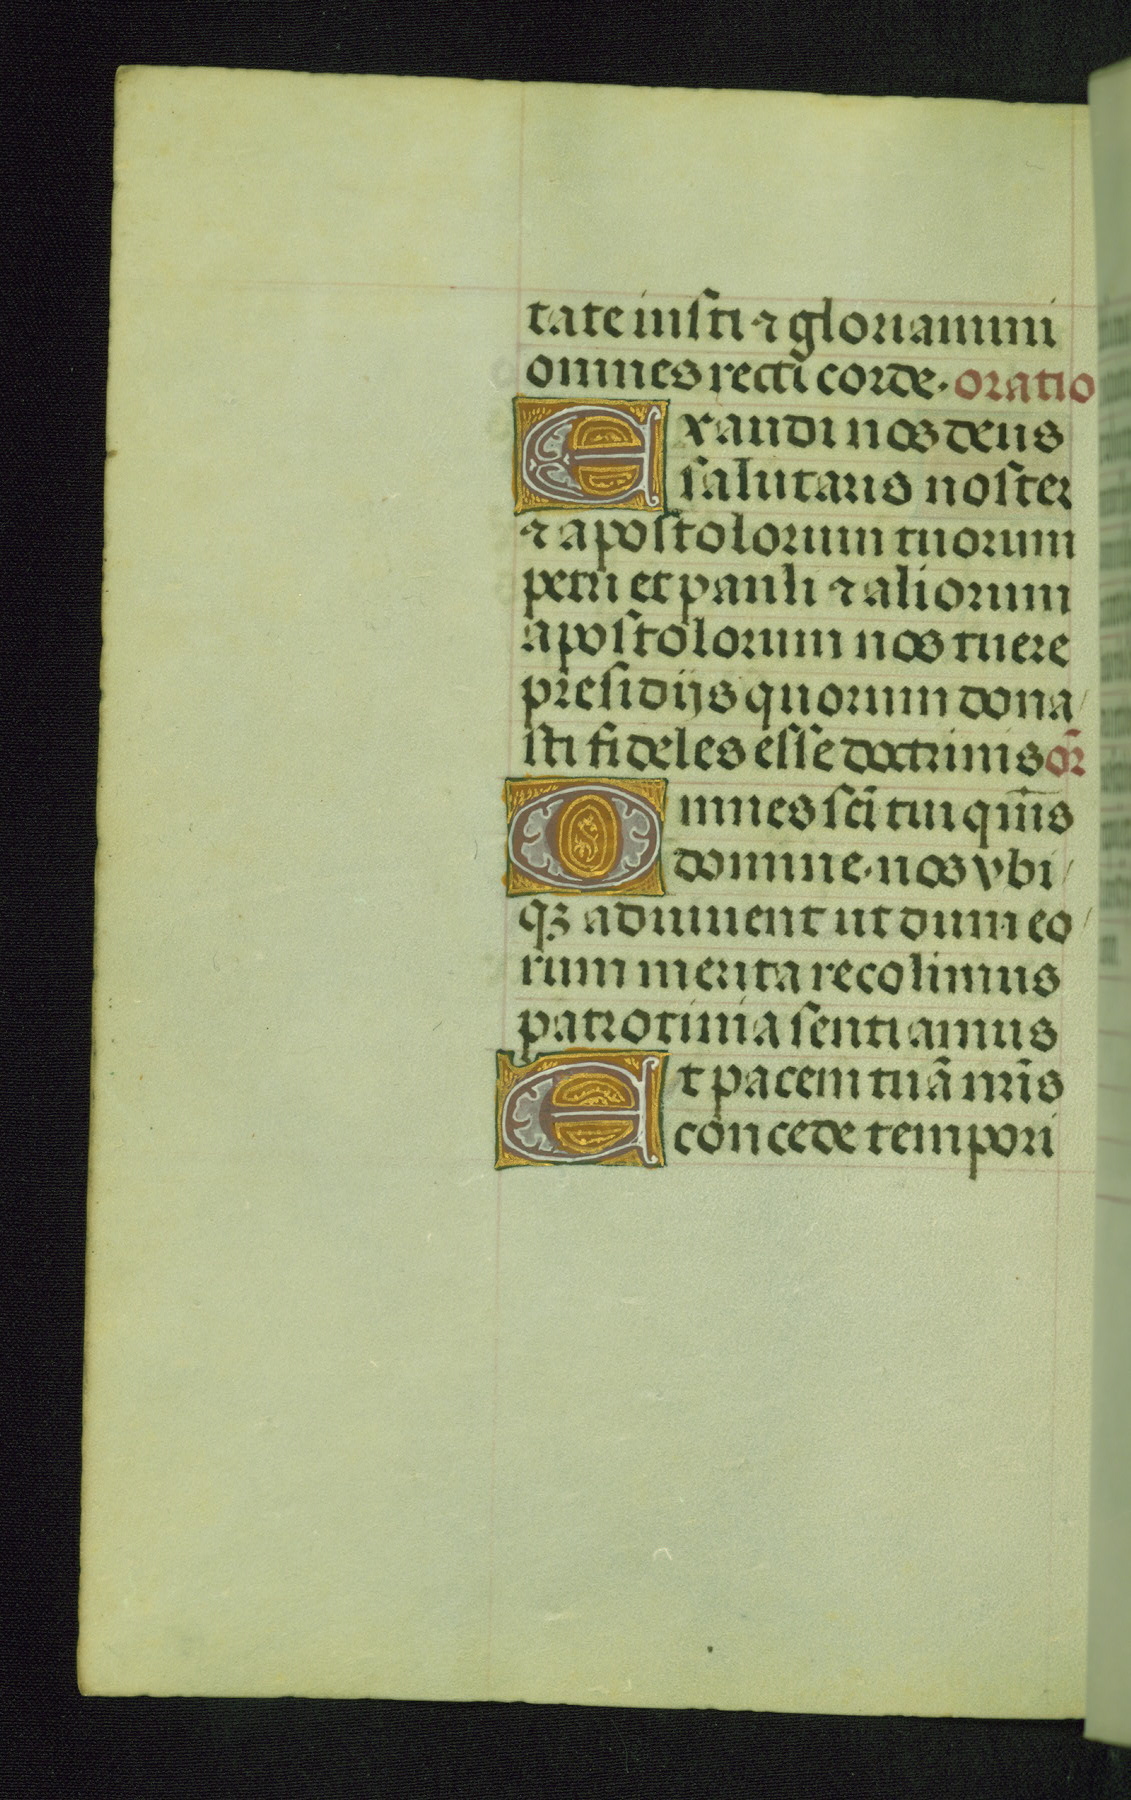 tate iusti ⁊ gloriamini
omnes recti corde. oratio
Exaudi nos deus
salutaris noster
⁊ apostolorum tuorum
petri et pauli ⁊ aliorum
apostolorum nos tuere
presidijs quorum dona/
sti fideles esse doctrinis or̃
Omnes sc̃i tui qm̃s
domine. nos vbi/
qꝫ adiuuent ut dum eo/
rum merita recolimus
patrocinia sentiamus
Et pacem tuã nrĩs
concede tempori